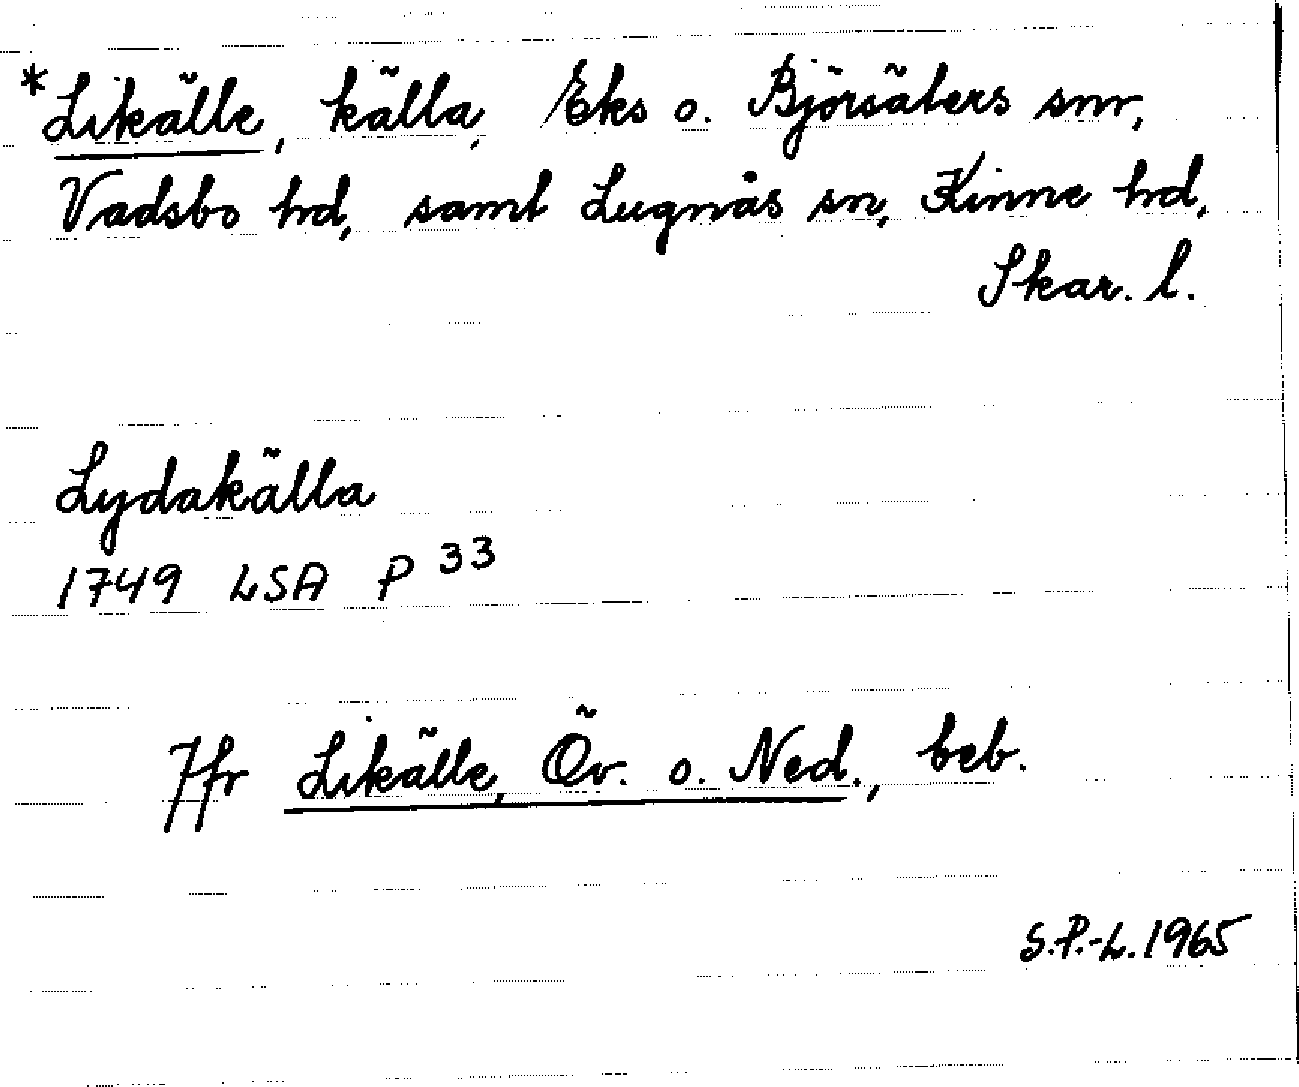 *Likälle, källa, Eks o. Björsäters snr,
Vadsbo hd, samt Lugnås sn, Kinne hd,
Skar. l.
Lydakälla
1749 LSA P 33
Jfr Likälle, Öv. o. Ned., beb.
S.P.-L. 1965